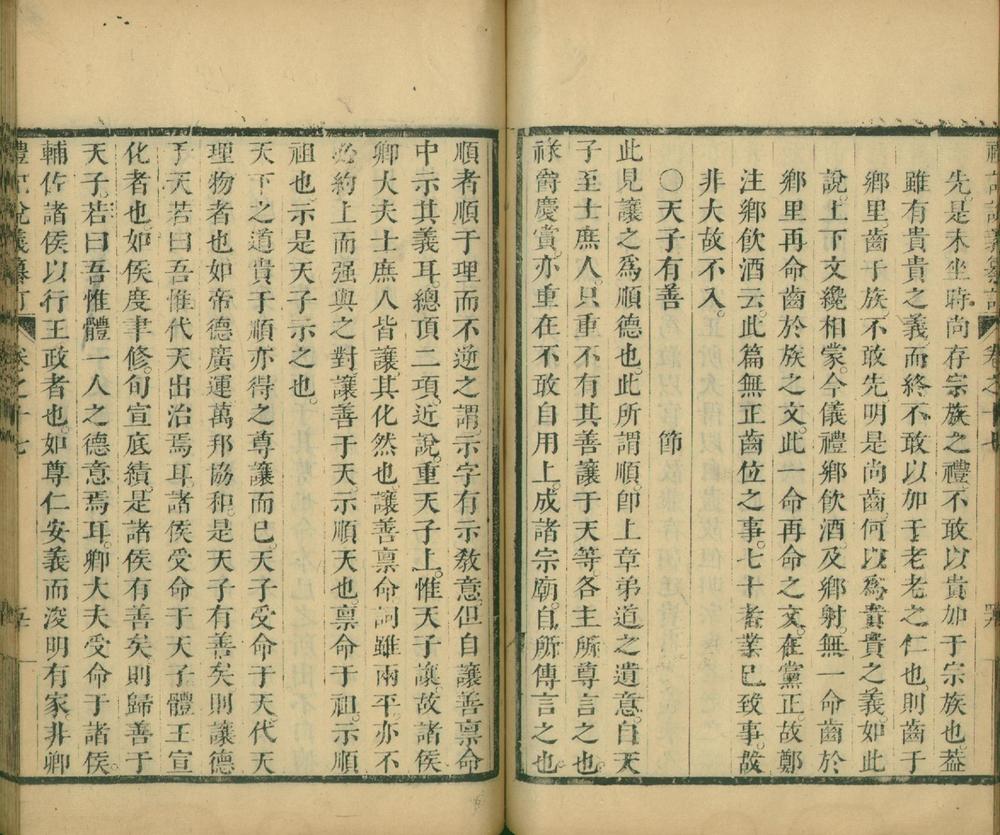 先。是未坐時尚存宗族之禮。不敢以貴加于宗族也。蓋
雖有貴貴之義。而終不敢以加于老老之仁也。則齒于
鄉里。齒于族。不敢先。明是尚齒。何以為貴貴之義。如此
說。上下文纔相蒙。今儀禮鄉飲酒及鄉射。無一命齒於
鄉里再命齒於族之文。此一命再命之文。在黨正。故鄭
注鄉飲酒云。此篇無正齒位之事。七十者。業已致事。故
非大故不入。
〇天子有善　　　節
此見讓之爲順德也。此所謂順。卽上章弟道之遺意。自天
子至士庶人。只重不有其善讓于天等各主所尊言之也。
祿爵慶賞。亦重在不敢自用上。成諸宗廟。自所傳言之也。
順者順于理而不逆之謂。示字有示敎意。但自讓善稟命
中示其義耳。總頂二項。近說。重天子上。惟天子讓。故諸侯
卿大夫士庶人皆讓其化然也。讓善稟命詞雖兩平。亦不
必約上而强與之對讓善于天。示順天也。稟命于祖。示順
祖也。示是天子示之也。
天下之道貴于順亦得之尊讓而已。天子受命于天。代天
理物者也。如帝德廣運萬邦協和。是天子有善矣。則讓德
于天。若曰吾惟代天出治焉耳。諸侯受命于天子。體王宣
化者也。如侯度聿修。旬宣底績。是諸侯有善矣。則歸善于
天子。若曰吾惟體一人之德意焉耳。卿大夫受命于諸侯。
輔佐諸侯以行王政者也。如尊仁安義而浚明有家。非卿
禮記說義纂訂　卷之十七